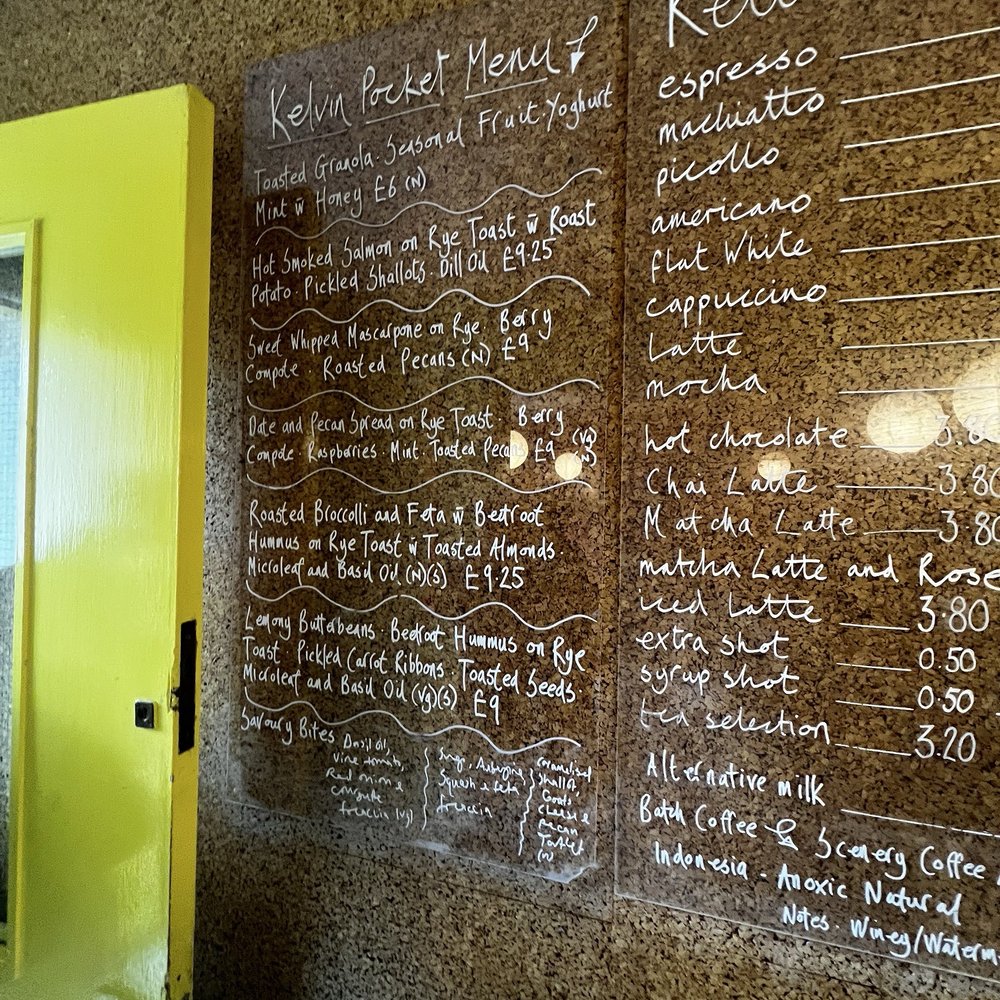 Kelvin Pocket Menu
Toasted Granola · Seasonal Fruit · Yoghurt
Mint w̄ Honey £6 (N)
Hot Smoked Salmon on Rye Toast w̄ Roast
Potato · Pickled Shallots · Dill Oil £9.25
Sweet Whipped Mascarpone on Rye · Berry
Compote · Roasted Pecans (N) £9
Date and Pecan Spread on Rye Toast · Berry
Compote · Raspberries · Mint · Toasted Pecans £9 (Vg) (N)
Roasted Broccolli and Feta w̄ Beetroot
Hummus on Rye Toast w̄ Toasted Almonds ·
Microleaf and Basil Oil (N)(S) £9.25
Lemony Butterbeans · Beetroot Hummus on Rye
Toast · Pickled Carrot Ribbons · Toasted Seeds ·
Microleaf and Basil Oil (Vg)(S) £9
Savoury Bites
Basil oil,
vine tomato,
Red onion &
courgette
focaccia (vg)
Aubergine
Squash & feta
focaccia
Caramelised
Shallot,
Goats
cheese &
Pecan
Tartlet
(N)
espresso
machiatto
picollo
americano
flat White
cappuccino
Latte
mocha
hot chocolate 3.80
Chai Latte 3.80
Matcha Latte 3.80
matcha Latte and Rose
iced Latte 3.80
extra shot 0.50
syrup shot 0.50
tea selection 3.20
Alternative milk
Batch Coffee Scenery Coffee
Indonesia - Anoxic Natural
Notes · Winey/Waterm